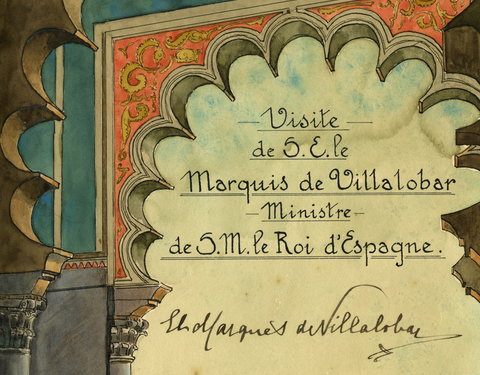 Visite
de S.E. le
Marquis de Villalobar
Ministre
de S.M. le Roi d'Espagne.
El Marqués de Villalobar